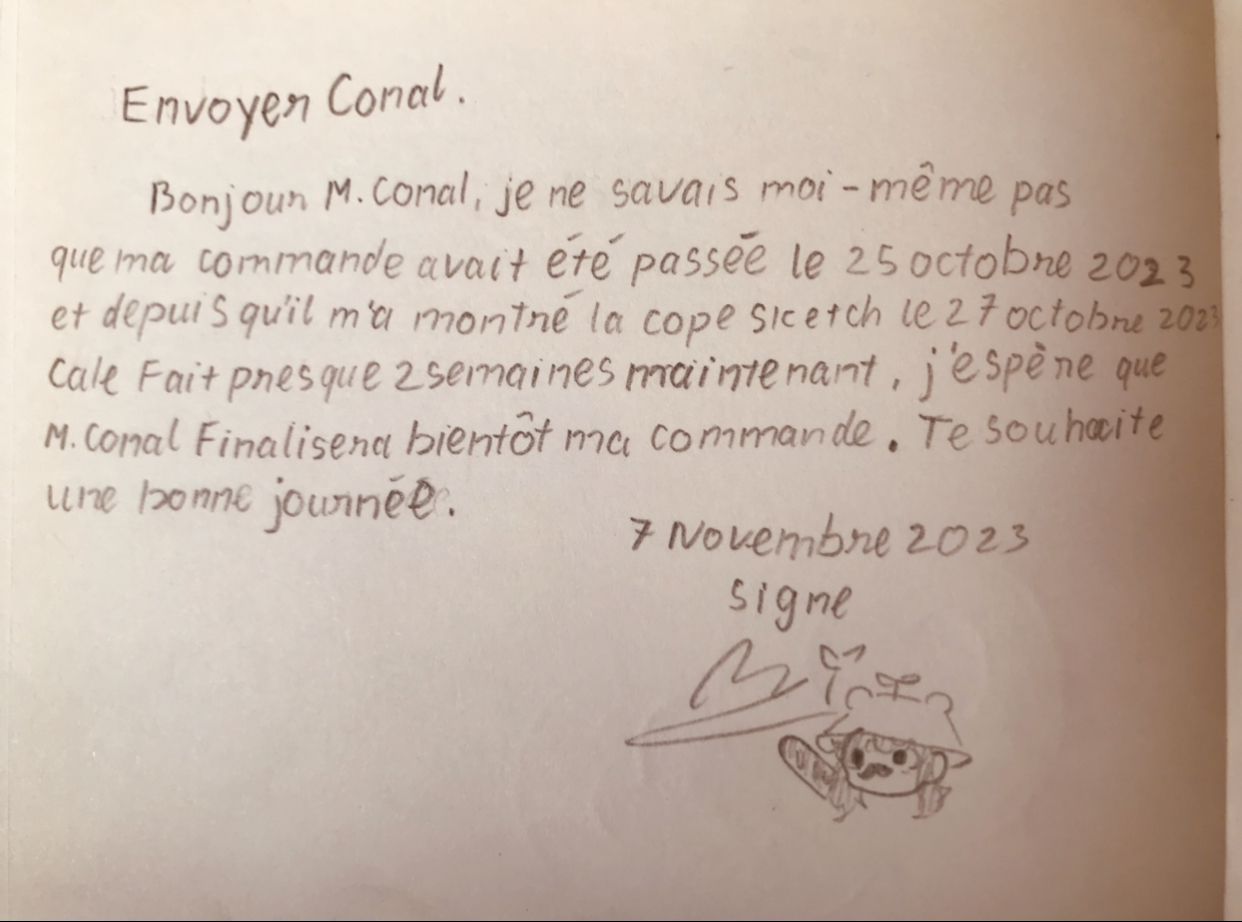 Envoyer Conal.
Bonjour M. Conal, je ne savais moi-même pas
que ma commande avait été passée le 25 octobre 2023
et depuis qu'il m'a montré la cope sketch le 27 octobre 2023
Cale Fait presque 2 semaines maintenant, j'espère que
M. Conal Finalisera bientôt ma commande. Te souhaite
une bonne journée.
7 Novembre 2023
Signe